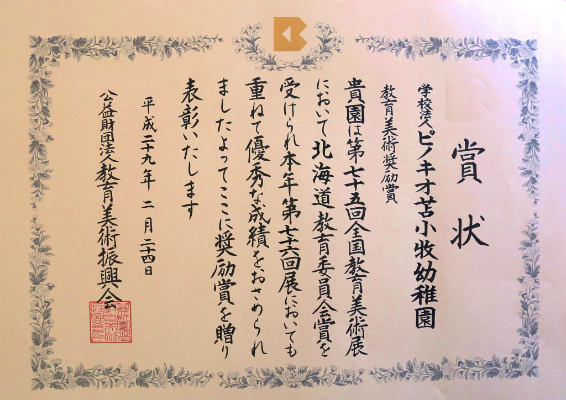 賞状
学校法人ピノキオ苫小牧幼稚園
教育美術奨励賞
貴園は第七十五回全国教育美術展
において北海道教育委員会賞を
受けられ本年第七十六回展においても
重ねて優秀な成績をおさめられ
ましたよってここに奨励賞を贈り
表彰いたします
平成二十九年二月二十四日
公益財団法人教育美術振興会